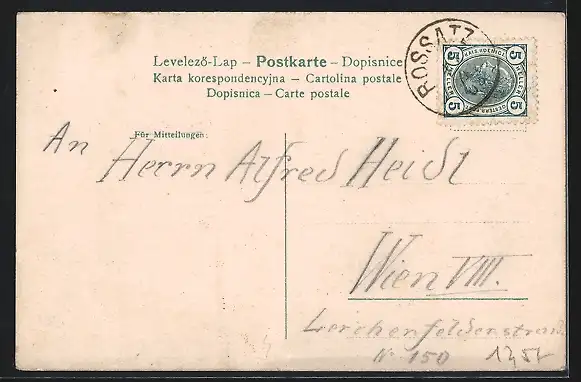 Levelező-Lap – Postkarte – Dopisnice
Karta korespondencyjna – Cartolina postale
Dopisnica – Carte postale
ROSSATZ
5 5
KAIS. KOENIGL.
HELLER HELLER
5 5
Für Mitteilungen:
An Herrn Alfred Heidl
Wien VIII.
Lerchenfelderstraße
Nr. 150